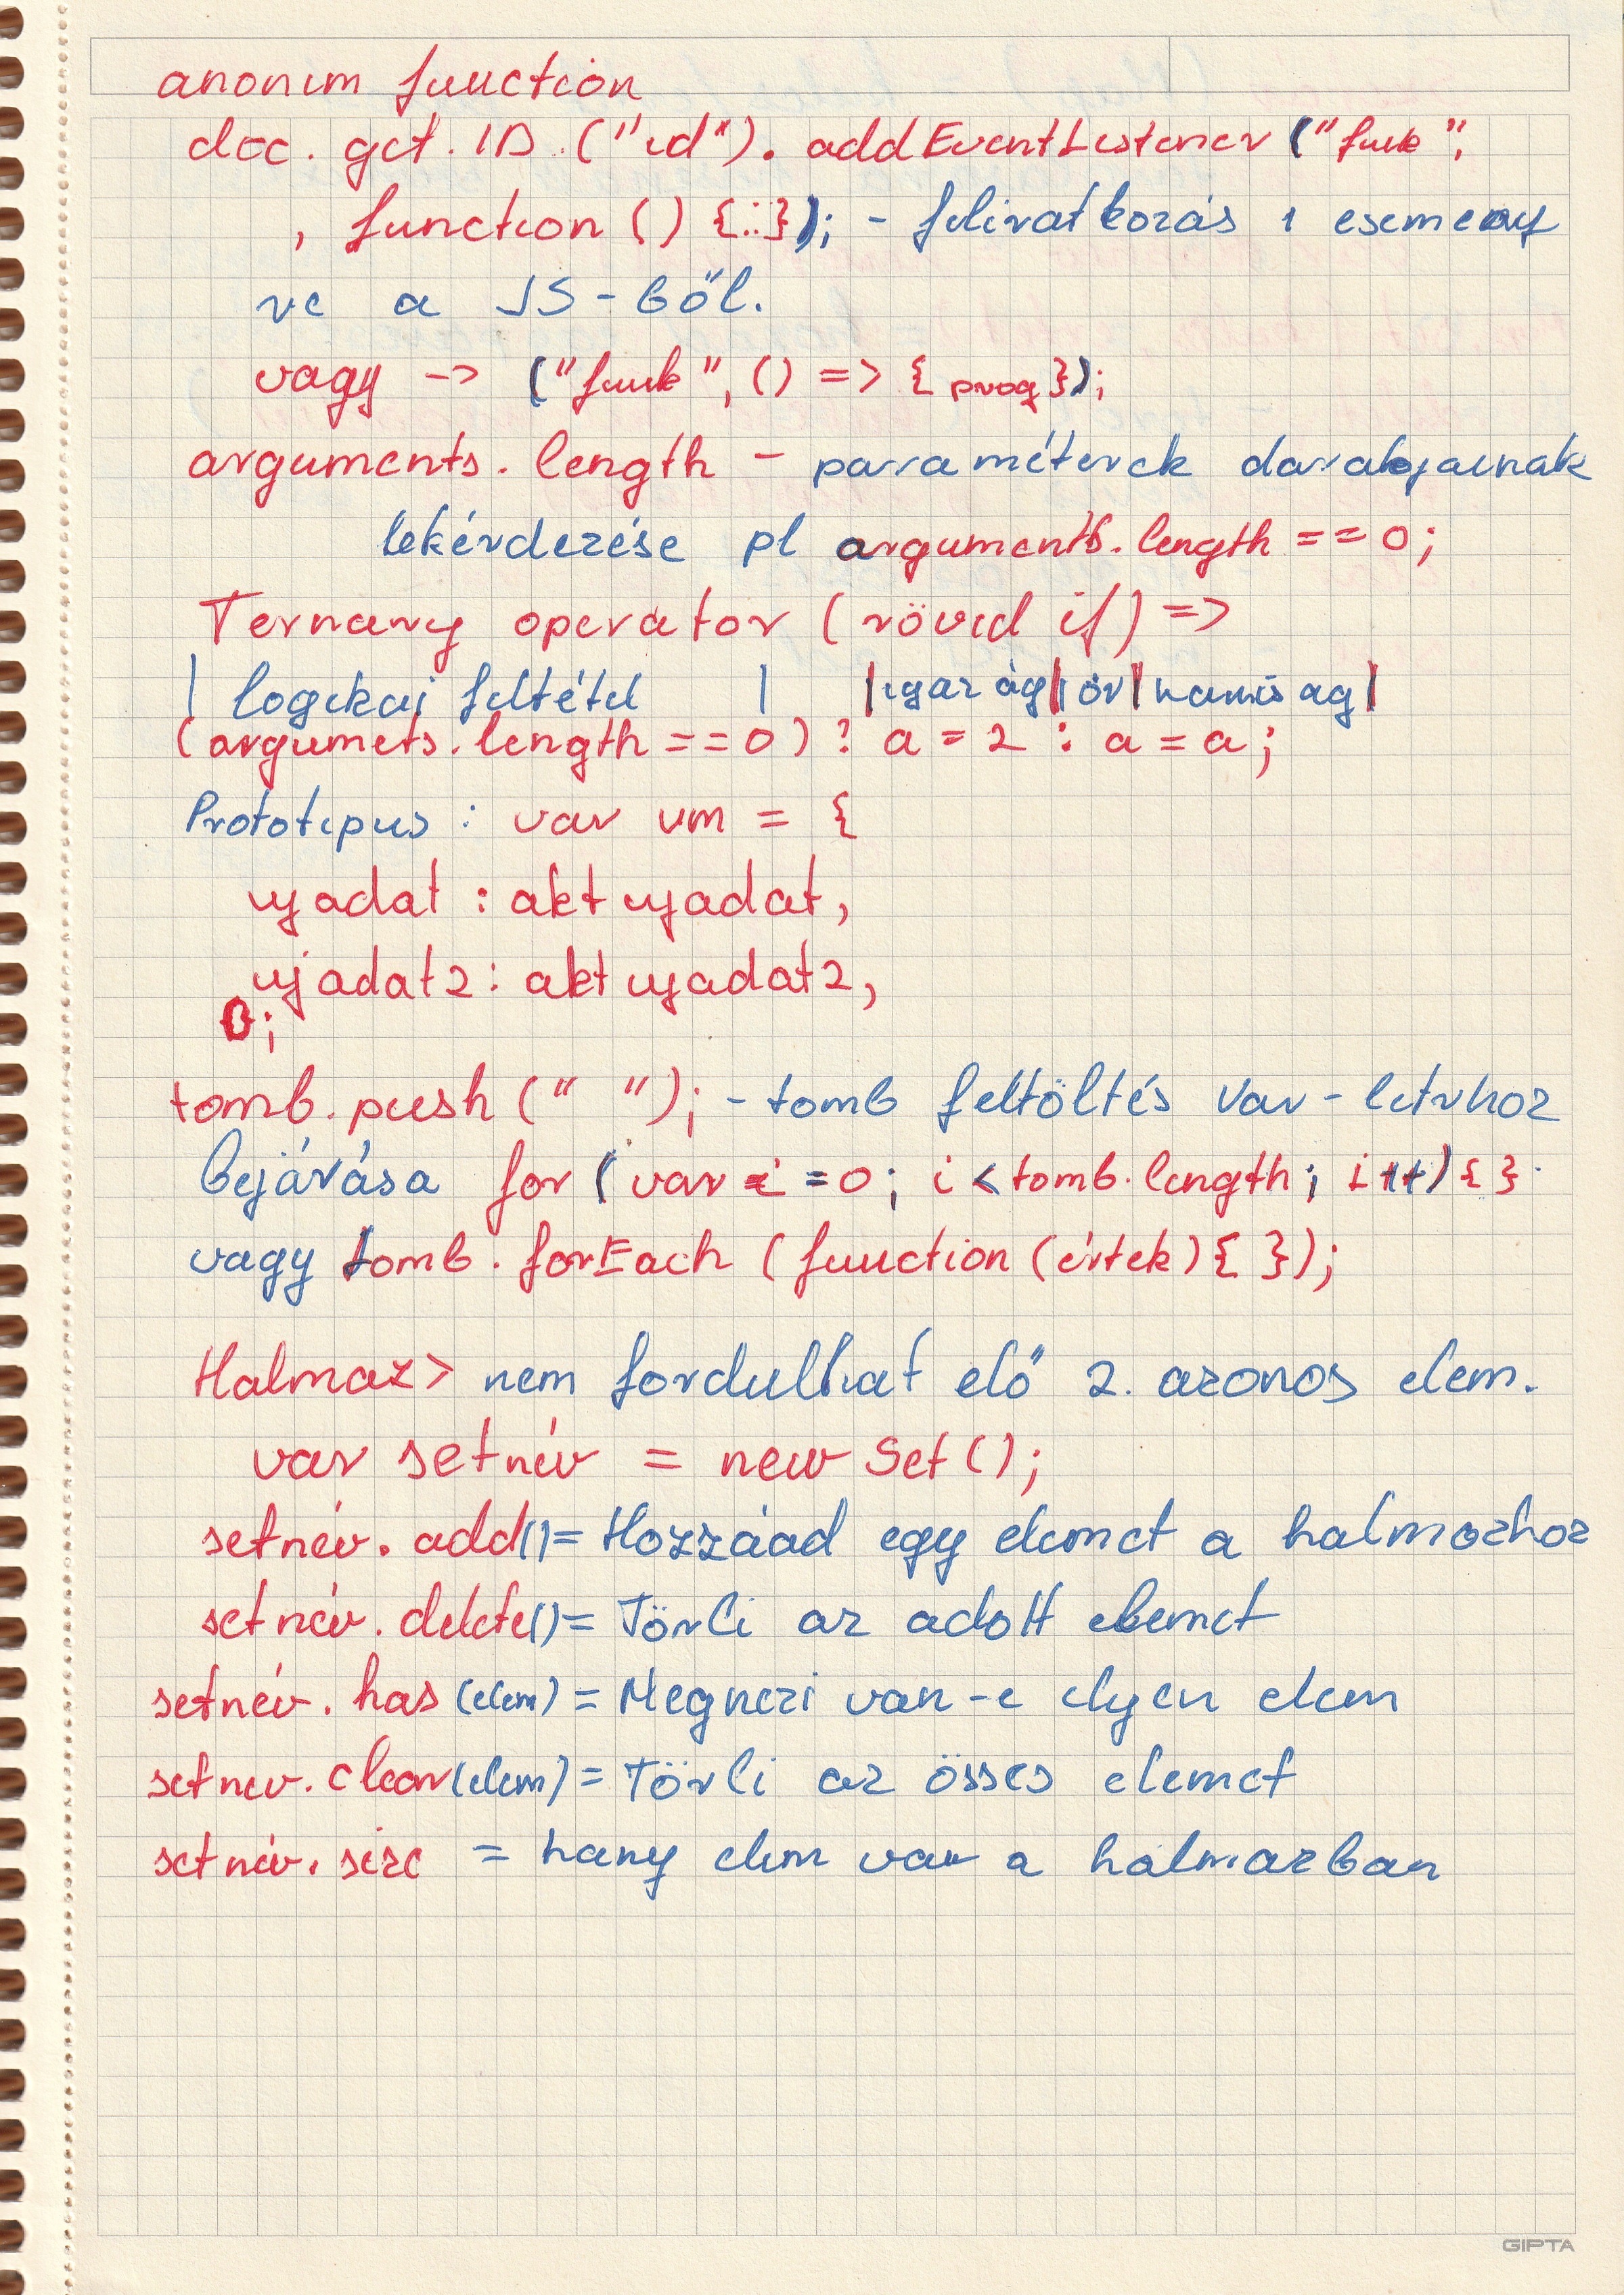 anonim function
doc. get. ID. ("id"). addEventListener ("funk",
, function () {...}); - felivatkozás 1 esemeny
re a JS-ből.
vagy -> ("funk", () => { prog });
arguments. length - paraméterek darabjainak
lekérdezése pl arguments. length == 0;
Ternary operator (rövid if) =>
| logikai feltétel | | igaz ág | : óv | hamis ag |
(argumets. length == 0) ? a = 2 : a = a;
Prototipus : var vm = {
ujadat : akt ujadat,
ujadat2 : akt ujadat2,
};
tomb. push (" "); - tomb feltöltés var-letrhoz
bejárása for ( var i = 0; i < tomb. length; i++) { }
vagy tomb. forEach (function (értek) { });
Halmaz > nem fordulhat elő 2. azonos elem.
var setnév = new Set ();
setnév. add() = Hozzáad egy elemet a halmozhoz
setnév. delete() = Törli az adott elemet
setnév. has (elem) = Megnezi van-e ilyen elem
setnev. clear (elem) = Törli az összes elemet
setnév. size = hany elem van a halmazban
GIPTA